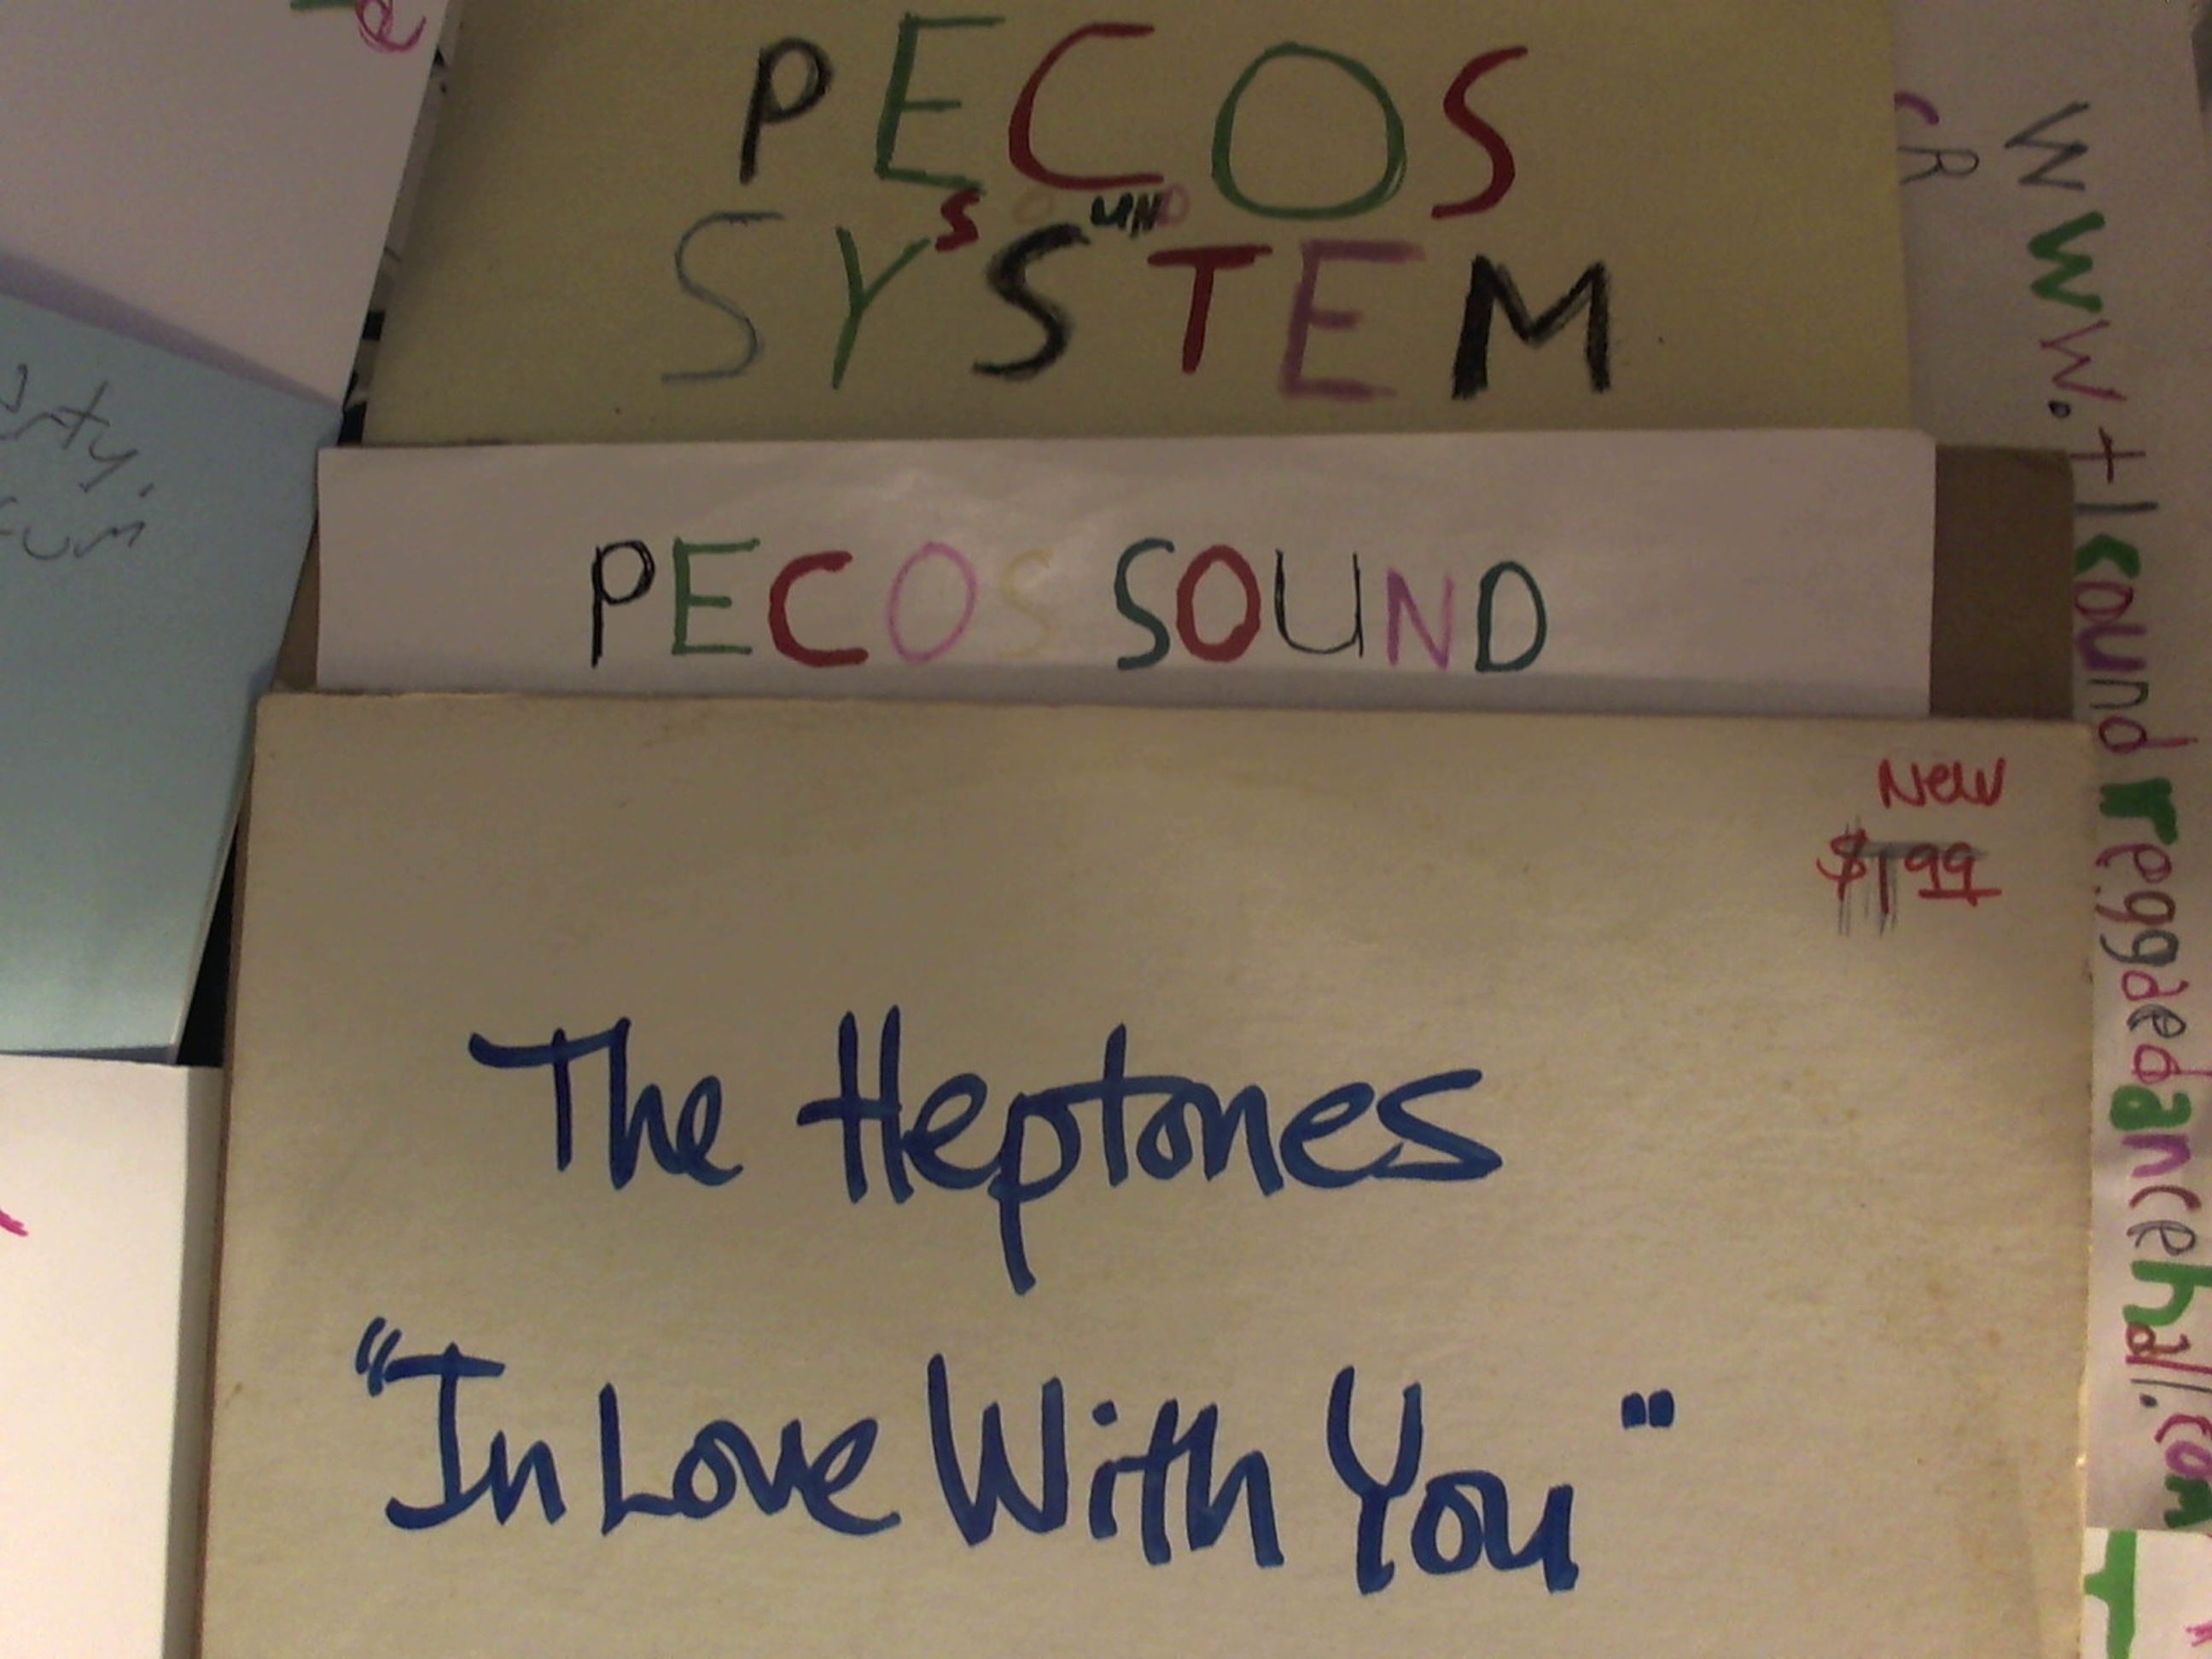 PECOS
SOUND
SYSTEM
PECOS SOUND
New
$1.99
The Heptones
"In Love With You"
www.tksoundreggaedancehall.com